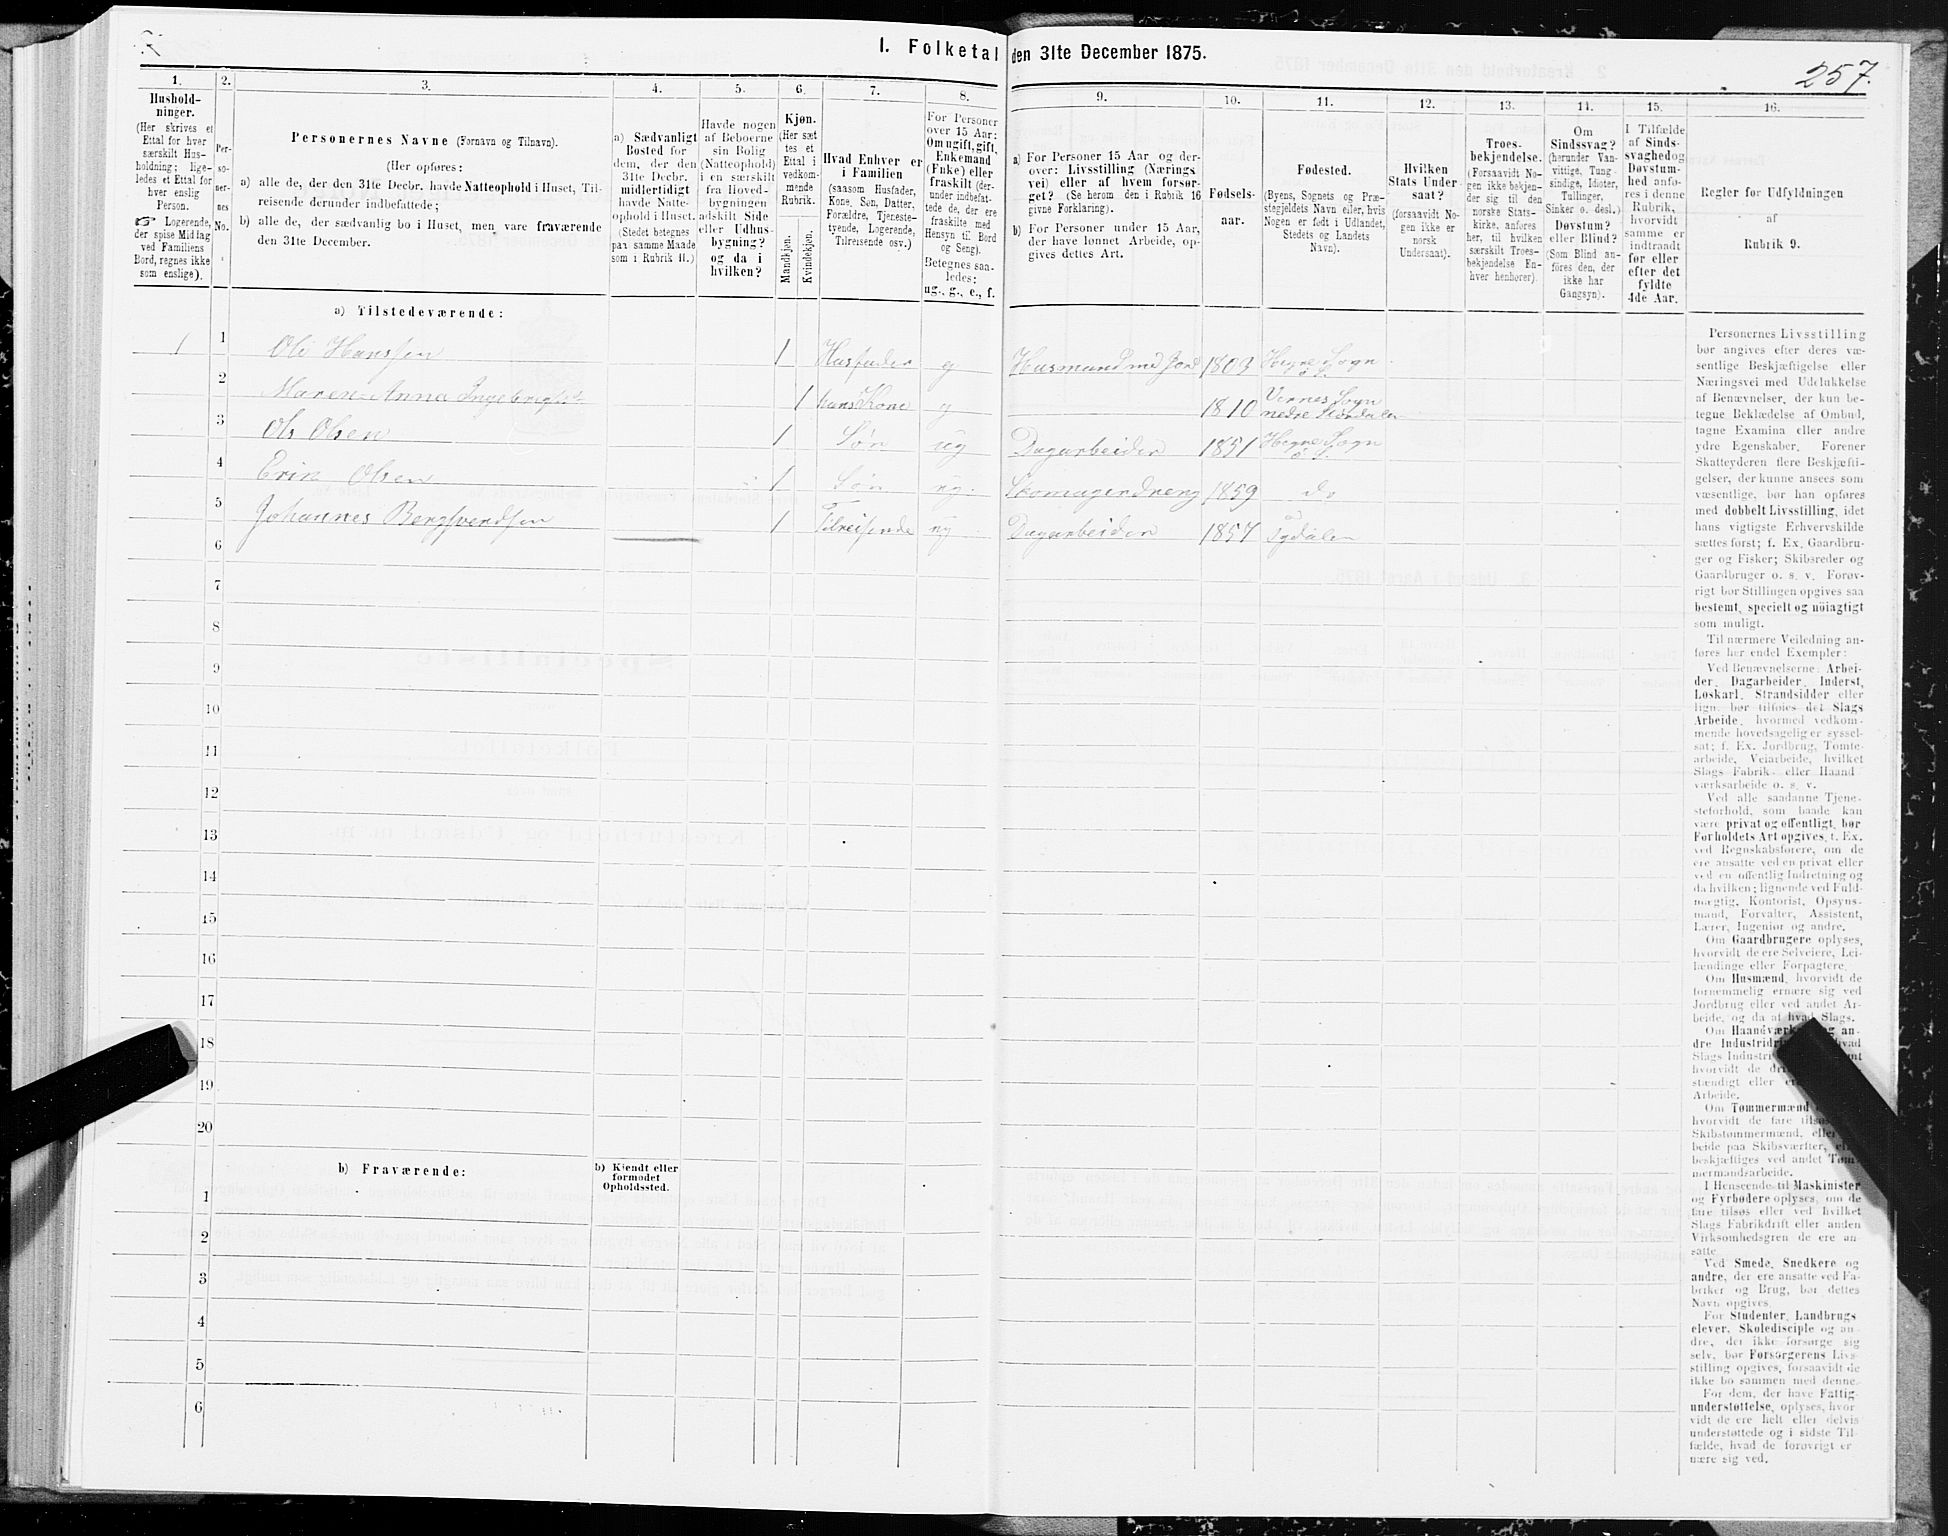 1. Folketal den 31te December 1875.
257.
1. 2. 3. 4. 5. 6. 7. 8. 9. 10. 11. 12. 13. 14. 15. 16.
Hushold-
ninger.
(Her skrives et
Ettal for hver
særskilt Hus-
holdning; lige-
ledes et Ettal for
hver enslig
Person.
☞ Logerende,
der spise Middag
ved Familiens
Bord, regnes ikke
som enslige).
Per-
so-
ner-
nes
No.
Personernes Navne (Fornavn og Tilnavn).
(Her opføres:
a) alle de, der den 31te Decbr. havde Natteophold i Huset, Til-
reisende derunder indbefattede;
b) alle de, der sædvanlig bo i Huset, men vare fraværende
den 31te December.
a) Sædvanligt
Bosted for
dem, der den
31te Decbr.
midlertidigt
havde Natte-
ophold i Huset.
(Stedet betegnes
paa samme Maade
som i Rubrik 11.)
Havde nogen
af Beboerne
sin Bolig
(Natteophold)
i en særskilt
fra Hoved-
bygningen
adskilt Side
eller Udhus-
bygning?
og da i
hvilken?
Kjøn.
(Her sæt-
tes et
Ettal i
vedkom-
mende
Rubrik.
Mandkjøn.
Kvindekjøn.
Hvad Enhver er
i Familien
(saasom Husfader,
Kone, Søn, Datter,
Forældre, Tjeneste-
tyende, Logerende,
Tilreisende osv.)
For Personer
over 15 Aar:
Om ugift, gift,
Enkemand
(Enke) eller
fraskilt (der-
under indbefat-
tede de, der ere
fraskilte med
Hensyn til Bord
og Seng).
Betegnes saa-
ledes:
ug., g., e., f.
a) For Personer 15 Aar og der-
over: Livsstilling (Nærings-
vei) eller af hvem forsør-
get? (Se herom den i Rubrik 16
givne Forklaring).
b) For Personer under 15 Aar,
der have lønnet Arbeide, op-
gives dettes Art.
Fødsels-
aar.
Fødested.
(Byens, Sognets og Præ-
stegjeldets Navn eller, hvis
Nogen er født i Udlandet,
Stedets og Landets
Navn).
Hvilken
Stats Under-
saat?
(forsaavidt No-
gen ikke er
norsk
Undersaat).
Troes-
bekjendelse.
(Forsaavidt No-
gen ikke bekjen-
der sig til den
norske Stats-
kirke, anføres
her, til hvilken
særskilt Troes-
bekjendelse En-
hver henhører).
Om
Sindssvag?
(herunder Van-
vittige, Tung-
sindige, Idioter,
Tullinger,
Sinker o. desl.)
Døvstum?
eller Blind?
(Som Blind an-
føres den, der
ikke har
Gangsyn).
I Tilfælde
af Sinds-
svaghed og
Døvstum-
hed anfø-
res i denne
Rubrik,
hvorvidt
samme er
indtraadt
før eller
efter det
fyldte
4de Aar.
Regler for Udfyldningen
af
Rubrik 9.
a) Tilstedeværende:
1 1 Ole Hanssen 1 Husfader g Husmand med Jord 1803 Hegne Sogn ø. S.
2 Maren Anna 1 hans Kone g 1810 Vernes Sogn nedre Stordalen
3 Ole Olsen 1 Søn ug Dagarbeider 1851 Hegne Sogn ø. S.
4 Erik Olsen 1 Søn ug. Skomagerdreng 1859 do
5 Johannes Bergsvendsen 1 Tilreisende ug Dagarbeider 1857 Tydalen
6
7
8
9
10
11
12
13
14
15
16
17
18
19
20
b) Fraværende:
b) Kjendt eller
formodet
Opholdssted.
1
2
3
4
5
6
Personernes Livsstilling
bør angives efter deres væ-
sentlige Beskjæftigelse eller
Næringsvei med Udelukkelse
af Benævnelser, der kun be-
tegne Beklædelse af Ombud,
tagne Examina eller andre
ydre Egenskaber. Forener
Skatteyderen flere Beskjæfti-
gelser, der kunne ansees som
væsentlige, bør han opføres
med dobbelt Livsstilling, idet
hans vigtigste Erhvervskilde
sættes først; f. Ex. Gaardbru-
ger og Fisker; Skibsreder og
Gaardbruger o. s. v. Forøv-
rigt bør Stillingen opgives saa
bestemt, specielt og nøiagtigt
som muligt.
Til nærmere Veiledning an-
føres her endel Exempler:
Ved Benævnelserne: Arbei-
der, Dagarbeider, Inderst,
Løskarl, Strandsidder eller
lign. bør tilføies det Slags
Arbeide, hvormed vedkom-
mende hovedsagelig er syssel-
sat; f. Ex. Jordbrug, Tomte-
arbeide, Veiarbeide, hvilket
Slags Fabrik- eller Haand-
værksarbeide o. s. v.
Ved alle saadanne Tjene-
steforhold, som baade kan
være privat og offentligt, bør
Forholdets Art opgives, f. Ex.
ved Regnskabsførere, om de
ere ansatte ved en privat eller
ved en offentlig Indretning og
da hvilken; lignende ved Fuld-
mægtig, Kontorist, Opsyns-
mand, Forvalter, Assistent,
Lærer, Ingeniør og andre.
Om Gaardbrugere oplyses,
hvorvidt de ere Selveiere, Lei-
lændinge eller Forpagtere.
Om Husmænd, hvorvidt de
fornemmelig ernære sig ved
Jordbrug eller ved andet Ar-
beide, og da af hvad Slags.
Om Haandværkere og an-
dre Industridrivende
Slags Industri
hvorvidt de
stændigt eller
Arbeide.
Om Tømmermænd
hvorvidt de fare
Skibstømmermænd, eller
beide paa Skibsværfter,
beskjæftiges ved andet Tøm-
mermandsarbeide.
I Henseende til Maskinister
og Fyrbødere oplyses, om de
fare tilsøs eller ved hvilket
Slags Fabrikdrift eller anden
Virksomhedsgren de ere an-
satte.
Ved Smede, Snedkere og
andre, der ere ansatte ved Fa-
briker og Brug, bør dettes
Navn opgives.
For Studenter, Landbrugs-
elever, Skoledisciple og an-
dre, der ikke forsørge sig
selv, bør Forsørgerens Livs-
stilling opgives, forsaavidt de
ikke bo sammen med denne.
For dem, der have Fattig-
understøttelse, oplyses, hvor-
vidt de ere helt eller delvis
understøttede og i sidste Til-
fælde, hvad de forøvrigt er-
nære sig ved.